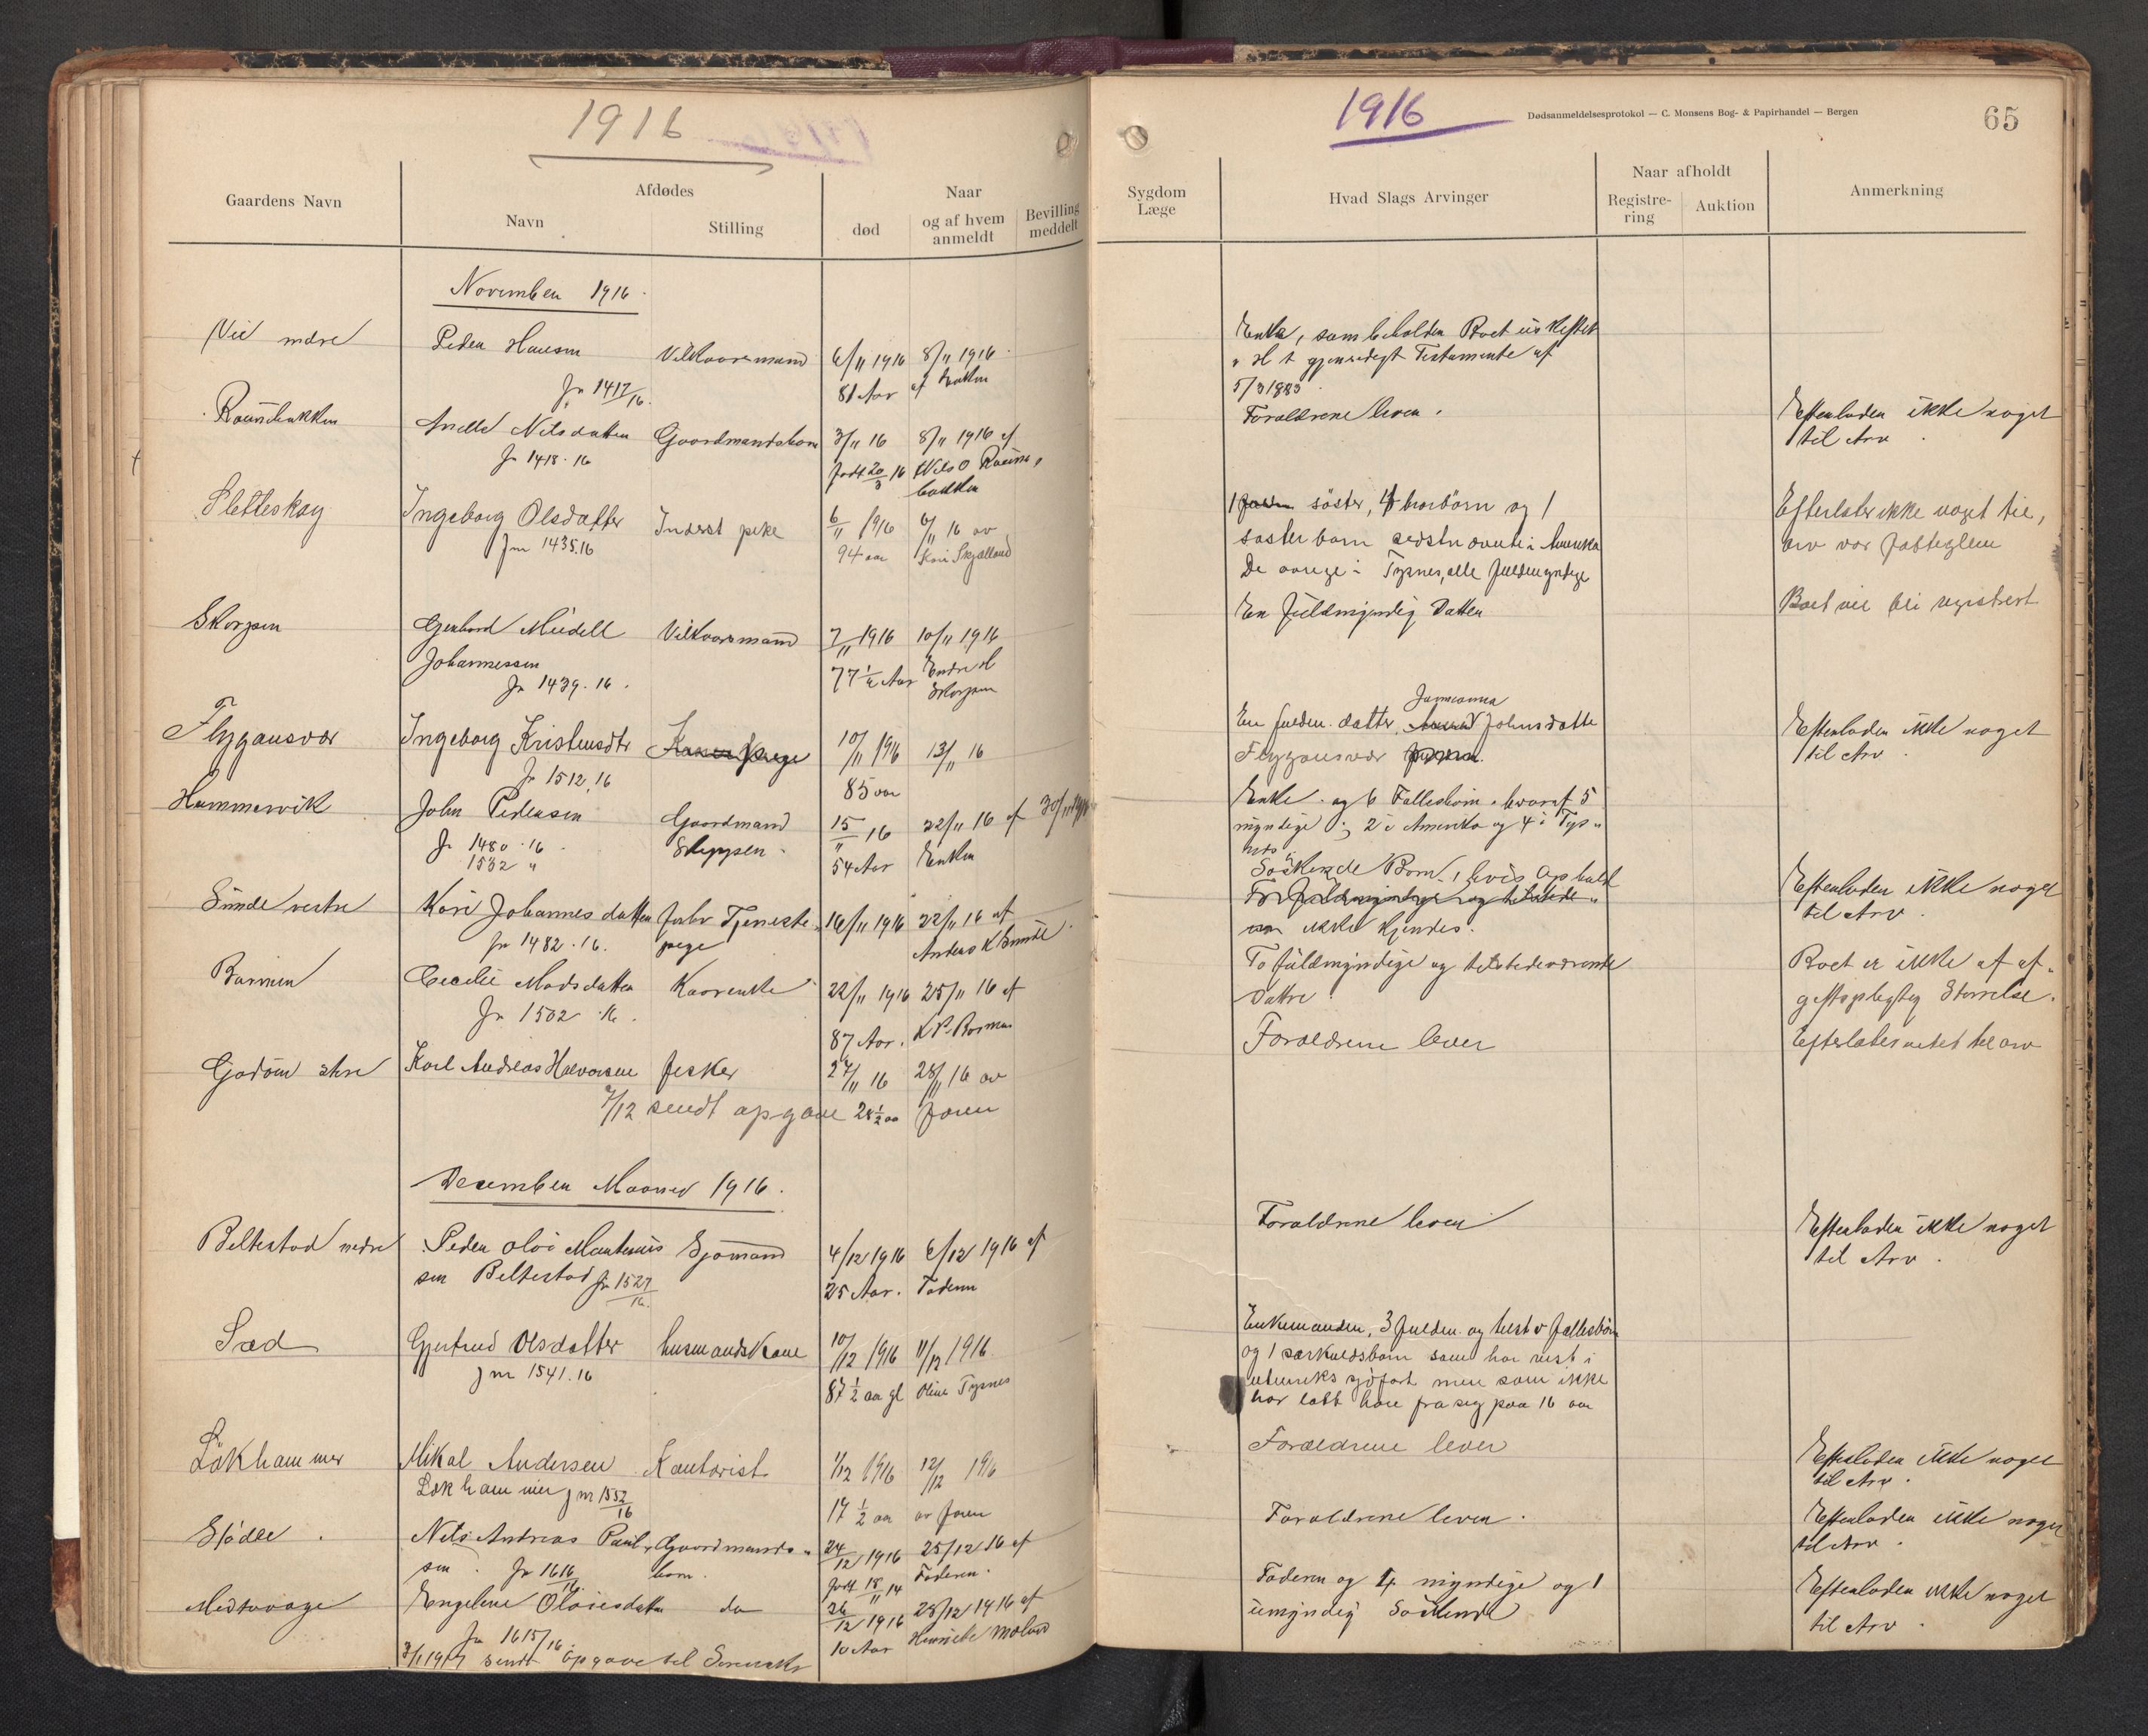 1916
1916
Dødsanmeldelsesprotokol — C. Monsens Bog- & Papirhandel — Bergen
65
Gaardens Navn
Afdødes
Navn
Stilling
død
Naar
og af hvem
anmeldt
Bevilling
meddelt
Sygdom
Læge
Hvad Slags Arvinger
Naar afholdt
Registre-
ring
Auktion
Anmerkning
November 1916.
Vie nedre
Peder Hansen
Jr 1417/16.
Vilkaarsmand
6/11 1916
81 Aar
8/11 1916.
af Enken
Enke, som beholder Boet uskiftet
H t gjensidigt Testamente af
5/3 1883.
Nilsdatter
Jr 1418.16
Gaardmandsbarn
3/11 16
født 20/3 16
8/11 1916 af
Nils O
Forældrene lever.
Efterlader ikke noget
til Arv.
Sletteskog
Ingeborg Olsdatter
Jnr 1435.16
Inderst pike
6/11 1916
94 aar
6/11 16 av
Kari Skjelland
1 søster, 4 brorbørn og 1
søsterbarn sidstnævnte i Amerika
De øvrige i Tysnes, alle fuldmyndige
Efterlater ikke noget til
arv var fattiglem
Skorpen
Gerhard Meidell
Johannessen
Jr 1439.16.
Vilkaarsmand
7/11 1916
77 1/2 Aar
10/11 1916
Endre H
Skorpen
En fuldmyndig Datter
Boet vil bli registrert
Flygansvær
Ingeborg Kristensdtr
Jr 1512.16
10/11 1916
85 aar
13/11 16
En fuldm. datter, Johnsdatter
Flygansvær
Efterlader ikke noget
til Arv.
Hammersvik
John Pedersen
Jr 1480.16.
1532 "
Gaardmand
Skipper.
15/11 16
54 Aar
22/11 16 af
Enken
30/11 1916
Enke og 6 Fællesbørn hvoraf 5
myndige; 2 i Amerika og 4 i Tys-
nes
Sunde vestre
Kari Johannesdatter
Jr 1482.16.
Tjeneste-
pige
16/11 1916
22/11 16 af
Anders K Sunde.
Søskende Børn, hvis Ophold
ikke kjendes.
Efterlader ikke noget
til Arv.
Cecelie Madsdatter
Jr 1502.16.
Kaarenke
22/11 1916
87 Aar.
25/11 16 af
To fuldmyndige og tilstedeværende
Døttre
Boet er ikke af af-
giftspligtig Størrelse.
Karl Andreas Halvorsen
fisker
27/11 16
28 1/2 aar
28/11 16 av
faren
7/12 sendt opgave
Forældrene lever
Efterlater intet til arv
Desember Maaned 1916.
Beltestad nedre
Peder Olai Martinus
sen Beltestad Jr 1527/16.
Sjømand
4/12 1916
25 Aar.
6/12 1916 af
Faderen
Forældrene lever
Efterlader ikke noget
til Arv.
Sæd
Gjertrud Olsdatter
jnr 1541.16
husmandskone
10/12 1916
87 1/2 aar gl
11/12 1916
Oline Tysnes
Enkemanden, 3 fuldm. og tilst v fællesbørn
og 1 særkuldsbarn som har reist i
utenriks sjøfart men som ikke
har latt høre fra seg paa 16 aar
Løkhammer
Mikal Andersen
Løkhammer jnr 1552/16
Kontorist
1/12 1916
17 1/2 aar
12/12 1916
av faren
Forældrene lever
Efterlader ikke noget
til Arv.
Stødle.
Nils Andreas Paul-
sen. Jr 1616/16.
Gaardmands-
barn.
24/12 1916
født 18/11 14
25/12 16 af
Faderen.
Forældrene lever.
Efterlader ikke noget
til Arv.
Engeline
Jr 1615/16.
do
26/12 1916
10 Aar
28/12 1916 af
Faderen og 4 myndige og 1
umyndig Søskende
Efterlader ikke noget
til Arv.
3/1 1917 sendt opgave til